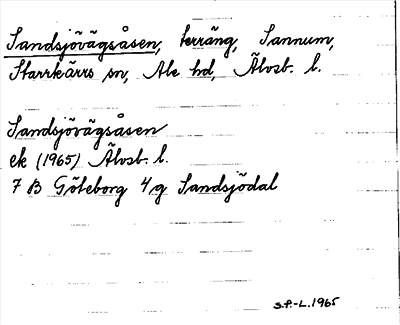 Sandsjövägsåsen, terräng, Sannum,
Starrkärrs sn, Ale hd, Älvsb. l.
Sandsjövägsåsen
ek (1965) Älvsb. l.
7 B Göteborg 4g Sandsjödal
S.P.-L. 1965